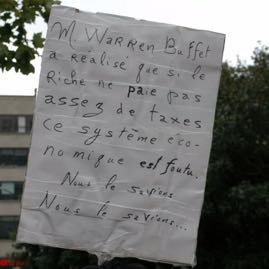 M. Warren Buffet
a réalisé que si le
Riche ne paie pas
assez de taxes
ce système éco-
nomique est foutu.
Nous le savions
Nous le savions...